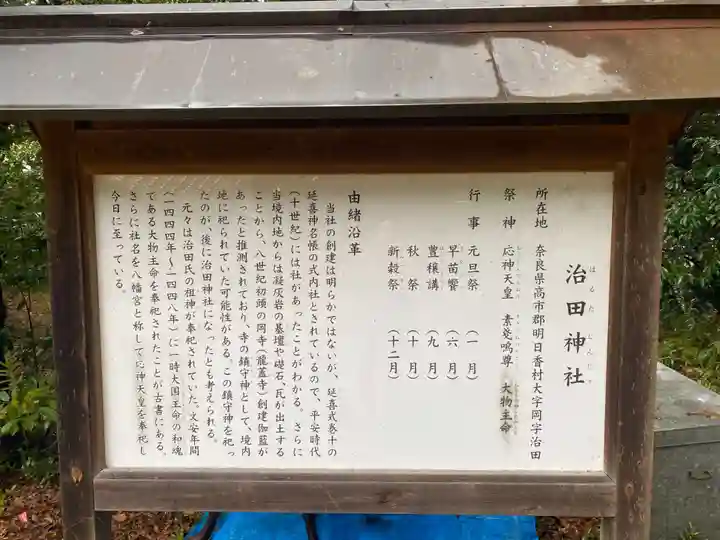 治田神社
はるた じんじゃ
所在地 奈良県高市郡明日香村大字岡字治田
祭神 応神天皇 素戔嗚尊 大物主命
行事 元旦祭 （一月）
早苗饗 （六月）
豊穣講 （九月）
秋祭 （十月）
新穀祭 （十二月）
由緒沿革
当社の創建は明らかではないが、延喜式巻十の
延喜神名帳の式内社とされているので、平安時代
（十世紀）には社があったことがわかる。さらに
当境内地からは凝灰岩の基壇や礎石、瓦が出土する
ことから、八世紀初頭の岡寺（龍蓋寺）創建伽藍が
あったと推測されており、寺の鎮守神として、境内
地に祀られていた可能性がある。この鎮守神を祀っ
たのが、後に治田神社になったとも考えられる。
元々は治田氏の祖神が奉祀されていた。文安年間
（一四四四年～一四四八年）に一時大国王命の和魂
である大物主命を奉祀されたことが古書にある。
さらに社名を八幡宮と称して応神天皇を奉祀し
今日に至っている。